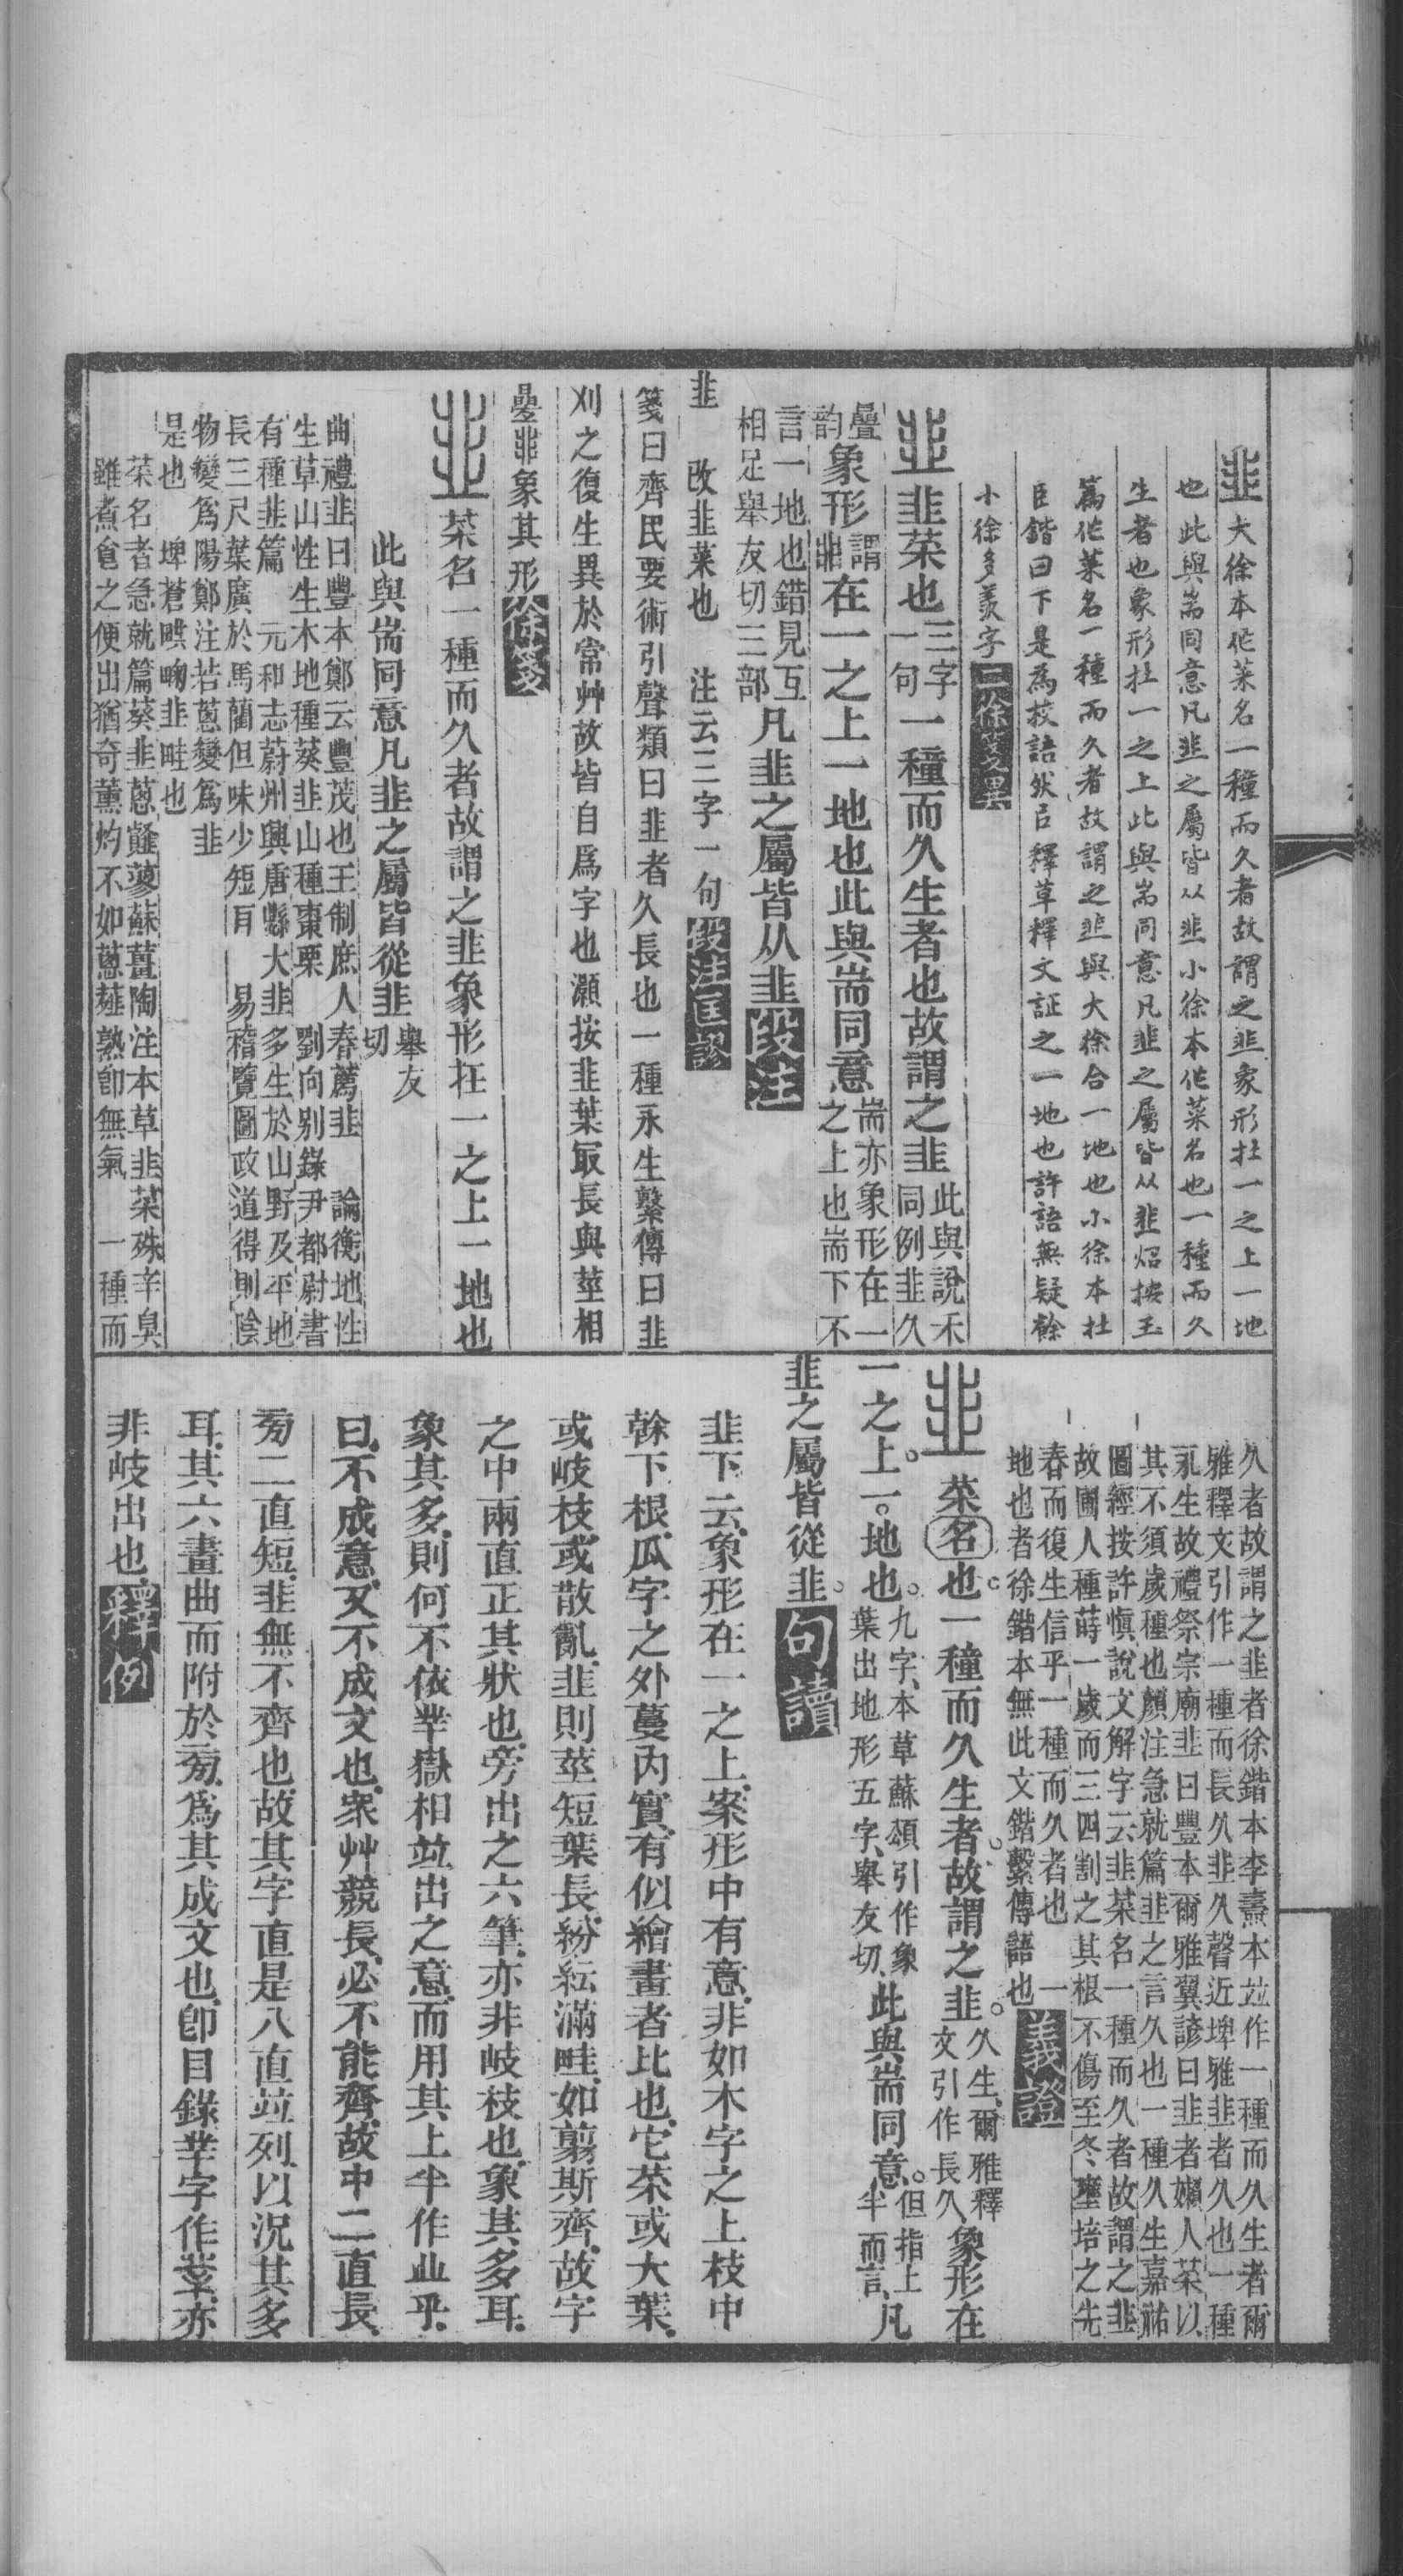 韭大徐本作菜名一種而久者故謂之韭象形在一之上一地
也　此與耑同意凡韭之屬皆从韭小徐本作菜名也一種而久
生者也象形在一之上此與耑同意凡韭之屬皆从韭炤按玉
篇作菜名一種而久者故謂之韭與大徐合一地也小徐本在
臣鍇曰下是為校語然以釋草釋文証之一地也許語無疑餘
小徐多羨字二徐箋異
韭韭菜也三字一句一種而久生者也故謂之韭此與說禾同例韭久
疊韵象形謂韭在一之上一地也此與耑同意耑亦象形在一之上也耑下不
言一地也錯見互相足舉友切三部凡韭之屬皆从韭段注
韭　改韭菜也　注云三字一句段注匡謬
箋曰齊民要術引聲類曰韭者久長也一種永生繫傳曰韭
刈之復生異於常艸故皆自爲字也灝按韭葉㝡長與莖相
㬪韭象其形徐箋
韭菜名一種而久者故謂之韭象形在一之上一地也
此與耑同意凡韭之屬皆從韭舉友切
曲禮韭曰豐本鄭云豐茂也王制庶人春薦韭　論衡地性
生草山性生木地種葵韭山種棗栗　劉向別錄尹都尉書
有種韭篇　元和志蔚州興唐縣大韭多生於山野及平地
長三尺葉廣於馬藺但味少短耳　易稽覽圖政道得則陰
物變爲陽鄭注若蔥變爲韭
是也　埤蒼䠂畹韭畦也
菜名者急就篇葵韭蔥䪥蓼蘇薑陶注本草韭菜殊辛臭
雖煮食之便出猶奇薰灼不如蔥薤熟卽無氣　一種而
久者故謂之韭者徐鍇本李燾本竝作一種而久生者爾
雅釋文引作一種而長久韭久聲近埤雅韭者久也一種
永生故禮祭宗廟韭曰豐本爾雅翼諺曰韭者嬾人菜以
其不須歲種也顏注急就篇韭之言久也一種久生嘉祐
圖經按許愼說文解字云韭菜名一種而久者故謂之韭
故圃人種蒔一歲而三四割之其根不傷至冬壅培之先
春而復生信乎一種而久者也　一
地也者徐鍇本無此文鍇繫傳語也義證
韭菜名也一種而久生者。故謂之韭。久生、爾雅釋文引作長久象形在
一之上。一。地也。九字、本草蘇頌引作象葉出地形五字、舉友切、此與耑同意。但指上半而言、凡
韭之屬皆從韭。句讀
韭下云、象形在一之上、案形中有意、非如木字之上枝中
榦下根、瓜字之外蔓內實、有似繪畫者比也、它菜或大葉、
或歧枝、或散亂、韭則莖短葉長、紛紜滿畦、如翦斯齊、故字
之中兩直正其狀也、旁出之六筆、亦非歧枝也、象其多耳、
象其多、則何不依丵嶽相竝出之意、而用其上半作业乎、
曰、不成意、又不成文也、衆艸競長、必不能齊、故中二直長、
旁二直短、韭無不齊也、故其字直是八直竝列、以況其多
耳、其六畫曲而附於旁、爲其成文也、卽目錄丵字作䒑、亦
非歧出也、釋例